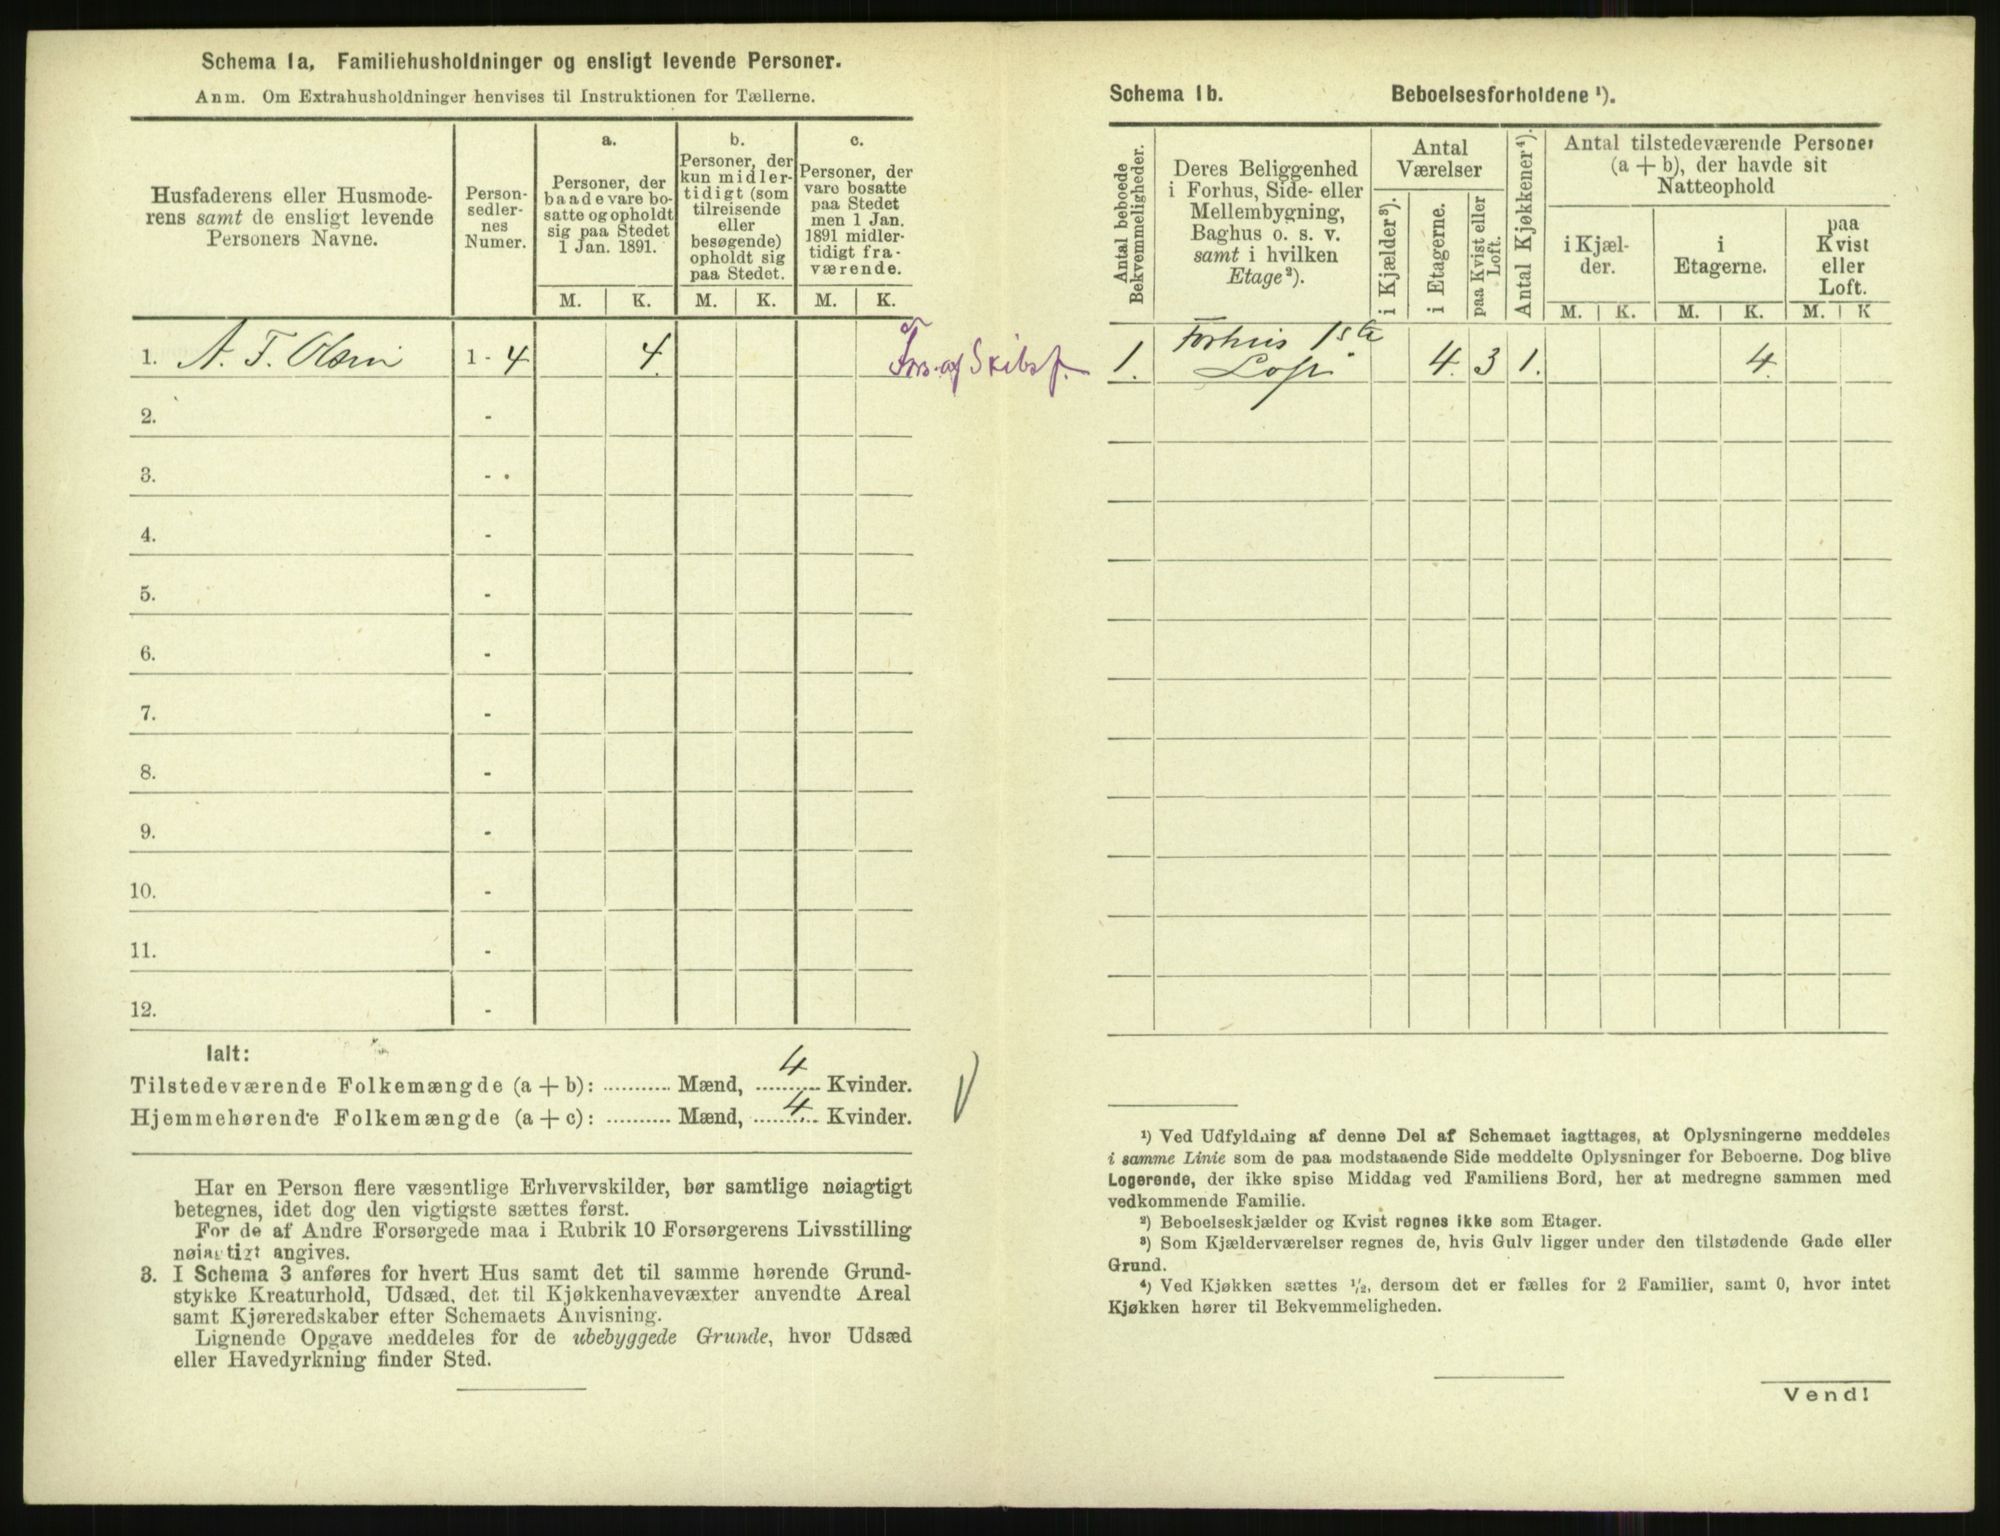 Schema 1a. Familiehusholdninger og ensligt levende Personer.
Anm. Om Extrahusholdninger henvises til Instruktionen for Tællerne.
Husfaderens eller Husmode-
rens samt de ensligt levende
Personers Navne.
Person-
sedler-
nes
Numer.
a.
Personer, der
baade vare bo-
satte og opholdt
sig paa Stedet
1 Jan. 1891.
b.
Personer, der
kun midler-
tidigt (som
tilreisende
eller
besøgende)
opholdt sig
paa Stedet.
c.
Personer, der
vare bosatte
paa Stedet
men 1 Jan.
1891 midler-
tidigt fra-
værende.
M. K. M. K. M. K.
1. A. F. Olsen 1 - 4 4.
Fors. af Skibsf.
2. -
3. -
4. -
5. -
6. -
7. -
8. -
9. -
10. -
11. -
12. -
Ialt:
Tilstedeværende Folkemængde (a + b): .......... Mænd, 4 Kvinder.
Hjemmehørende Folkemængde (a + c): .......... Mænd, 4. Kvinder.
Har en Person flere væsentlige Erhvervskilder, bør samtlige nøiagtigt
betegnes, idet dog den vigtigste sættes først.
For de af Andre Forsørgede maa i Rubrik 10 Forsørgerens Livsstilling
nøiagtigt angives.
3. I Schema 3 anføres for hvert Hus samt det til samme hørende Grund-
stykke Kreaturhold, Udsæd, det til Kjøkkenhavevæxter anvendte Areal
samt Kjøreredskaber efter Schemaets Anvisning.
Lignende Opgave meddeles for de ubebyggede Grunde, hvor Udsæd
eller Havedyrkning finder Sted.
Schema 1b. Beboelsesforholdene ¹).
Antal beboede
Bekvemmeligheder.
Deres Beliggenhed
i Forhus, Side- eller
Mellembygning,
Baghus o. s. v.
samt i hvilken
Etage²).
Antal
Værelser
i Kjælder³).
i Etagerne.
paa Kvist eller
Loft.
Antal Kjøkkener⁴).
Antal tilstedeværende Personer
(a + b), der havde sit
Natteophold
i Kjæl-
der.
i
Etagerne.
paa
Kvist
eller
Loft.
M. K. M. K. M. K
Forhus 1ste
1. Loft 4. 3 1. 4.
¹) Ved Udfyldning af denne Del af Schemaet iagttages, at Oplysningerne meddeles
i samme Linie som de paa modstaaende Side meddelte Oplysninger for Beboerne. Dog blive
Logerende, der ikke spise Middag ved Familiens Bord, her at medregne sammen med
vedkommende Familie.
²) Beboelseskjælder og Kvist regnes ikke som Etager.
³) Som Kjælderværelser regnes de, hvis Gulv ligger under den tilstødende Gade eller
Grund.
⁴) Ved Kjøkken sættes ½, dersom det er fælles for 2 Familier, samt 0, hvor intet
Kjøkken hører til Bekvemmeligheden.
Vend!